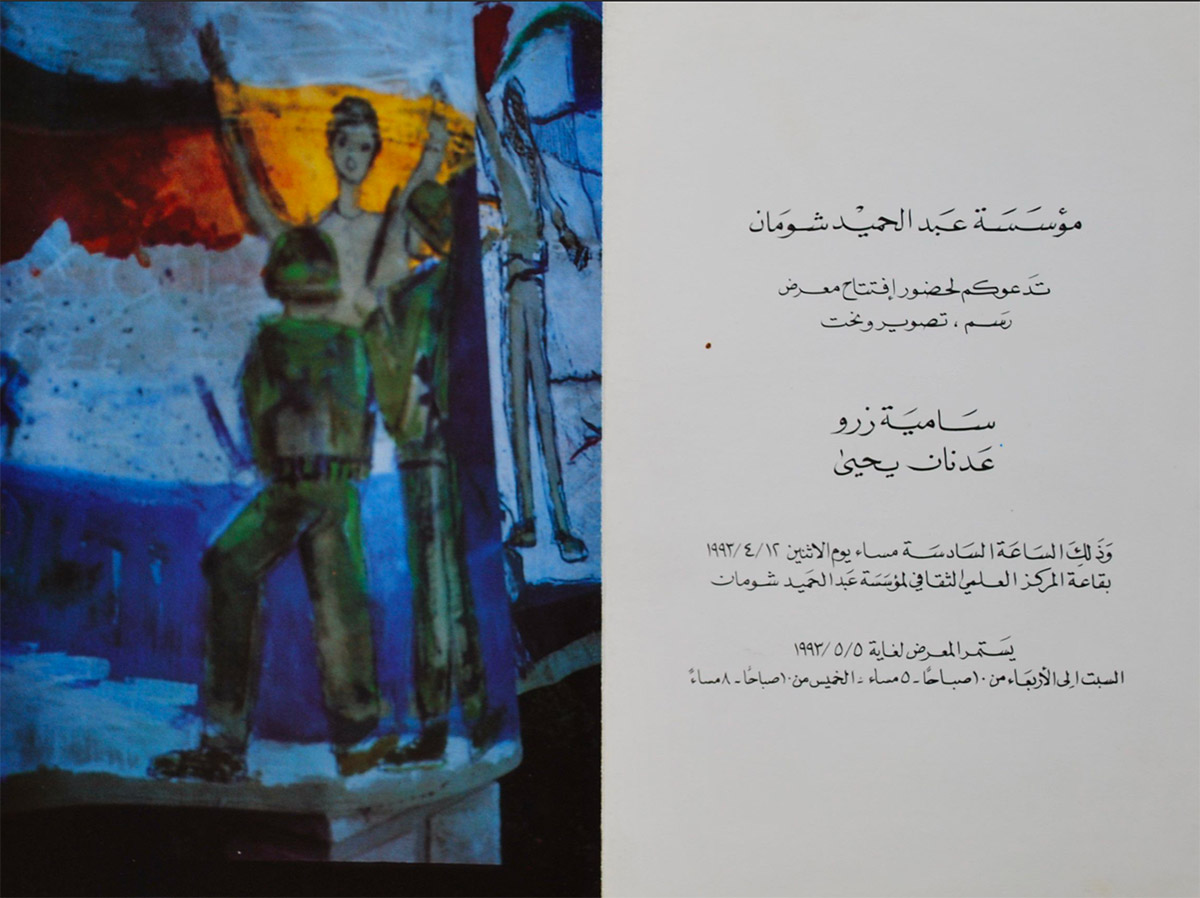 مؤسَسَة عَبد الحميْد شومَان
تَدعوكم لحضور إفتتاح معرض
رسَم ، تصوير ونحت
سَاميَة زرو
عَدنان يحيىٰ
وَذَلِكَ السَاعَة السَادسَة مساء يوم الاثنين ١٩٩٣/٤/١٢
بقاعة المركز العلمي الثقافي لمؤسَسَة عبد الحَميد شومان
يَستمر المعرض لغاية ١٩٩٣/٥/٥
السبت الِى الأربعَاء من ١٠صباحًا - ٥ مساء - الخميس من ١٠صباحًا - ٨ مساءً